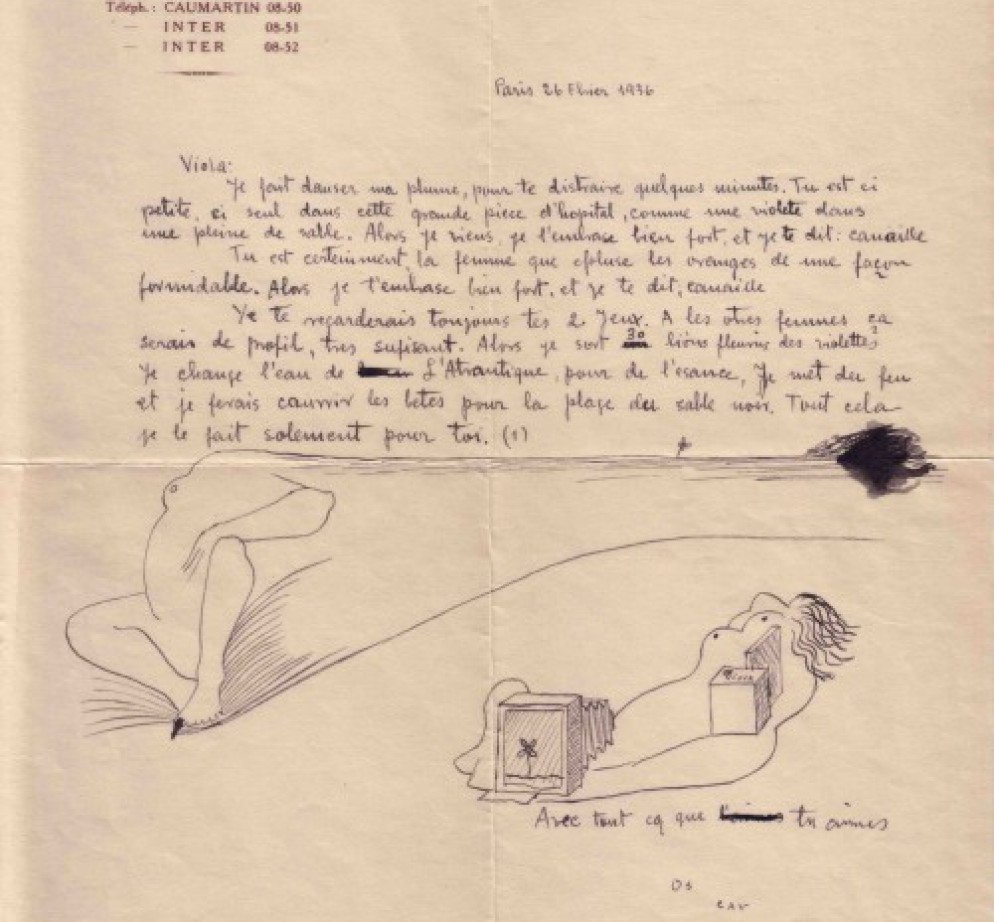 Téléph. : CAUMARTIN 08-50
— INTER 08-51
— INTER 08-52
Paris 26 1936
Viola:
Je fait danser ma plume, pour te distraire quelques minutes. Tu est ci
petite, ci seul dans cette grande piece d'hopital, comme une violete dans
une pleine de sable. Alors je viens, je l'embrase bien fort, et je te dit: canaille
Tu est certeinment, la femme que epluse les oranges de une façon
formidable. Alors je t'embrase bien fort, et je te dit, canaille
Ye te regarderais toujours tes 2 Jeux. A les otres femmes ça
serais de profil, tres sufisant. Alors je sort 30 lions fleuris des violettes
Je change l'eau de L'Atrantique, pour de l'esance, Je met du feu
et je ferais courrir les betes pour la plage du sable noir. Tout cela
je le fait solement pour toi. (1)
Avec tout cq que tu aimes
Os
car